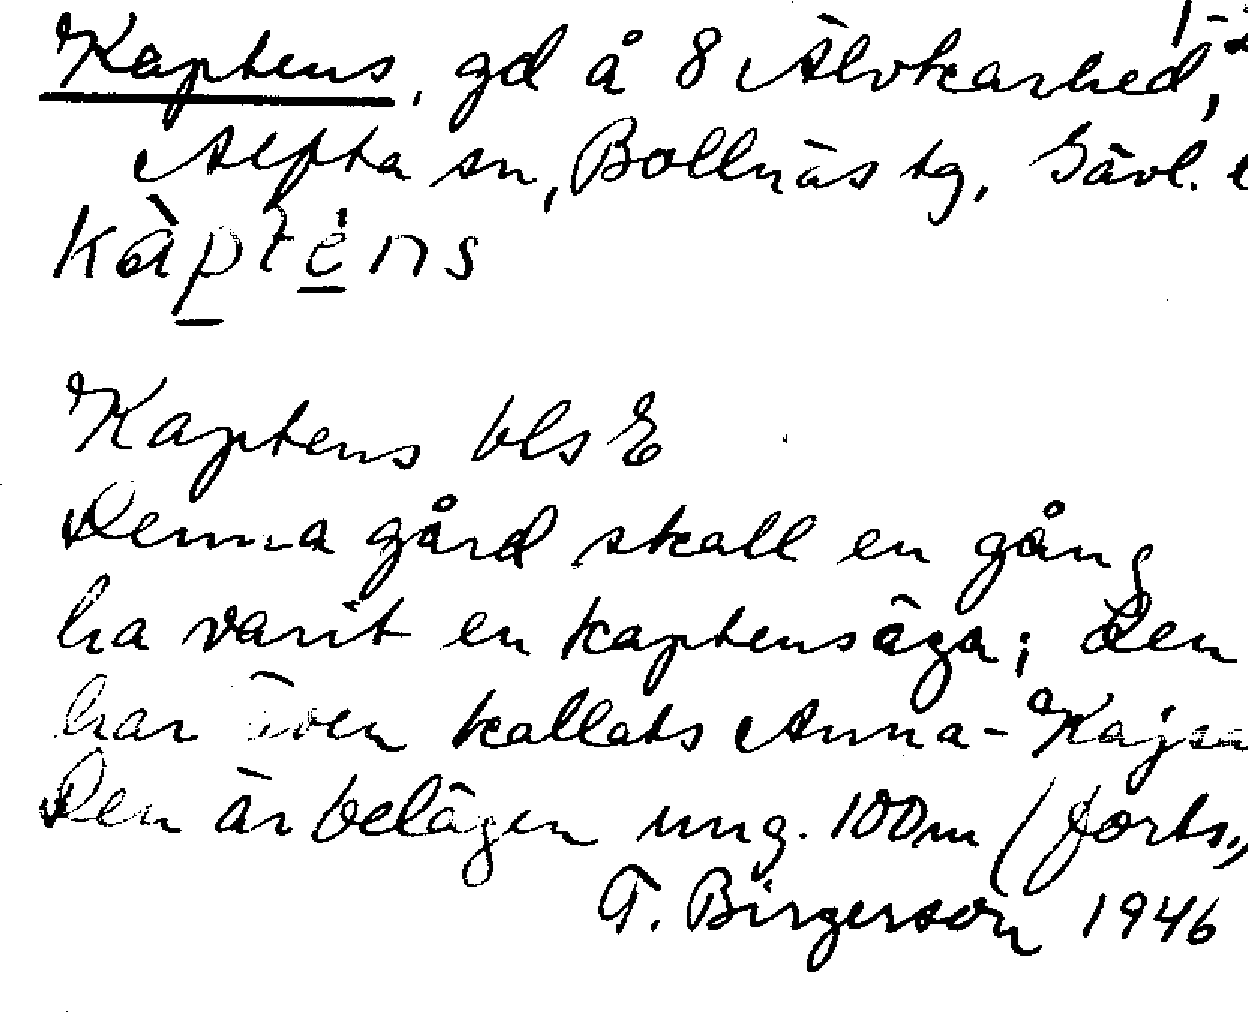 Kaptens, gd å 8 Älvkarhed,
Alfta sn, Bollnäs tg, Gävl.
kàpténs
Kaptens bls E
Denna gård skall en gång
ha varit en kaptensäga; Den
har även kallats Anna-Kajsa
Den är belägen ung. 100m (forts.,
T. Birgerson 1946